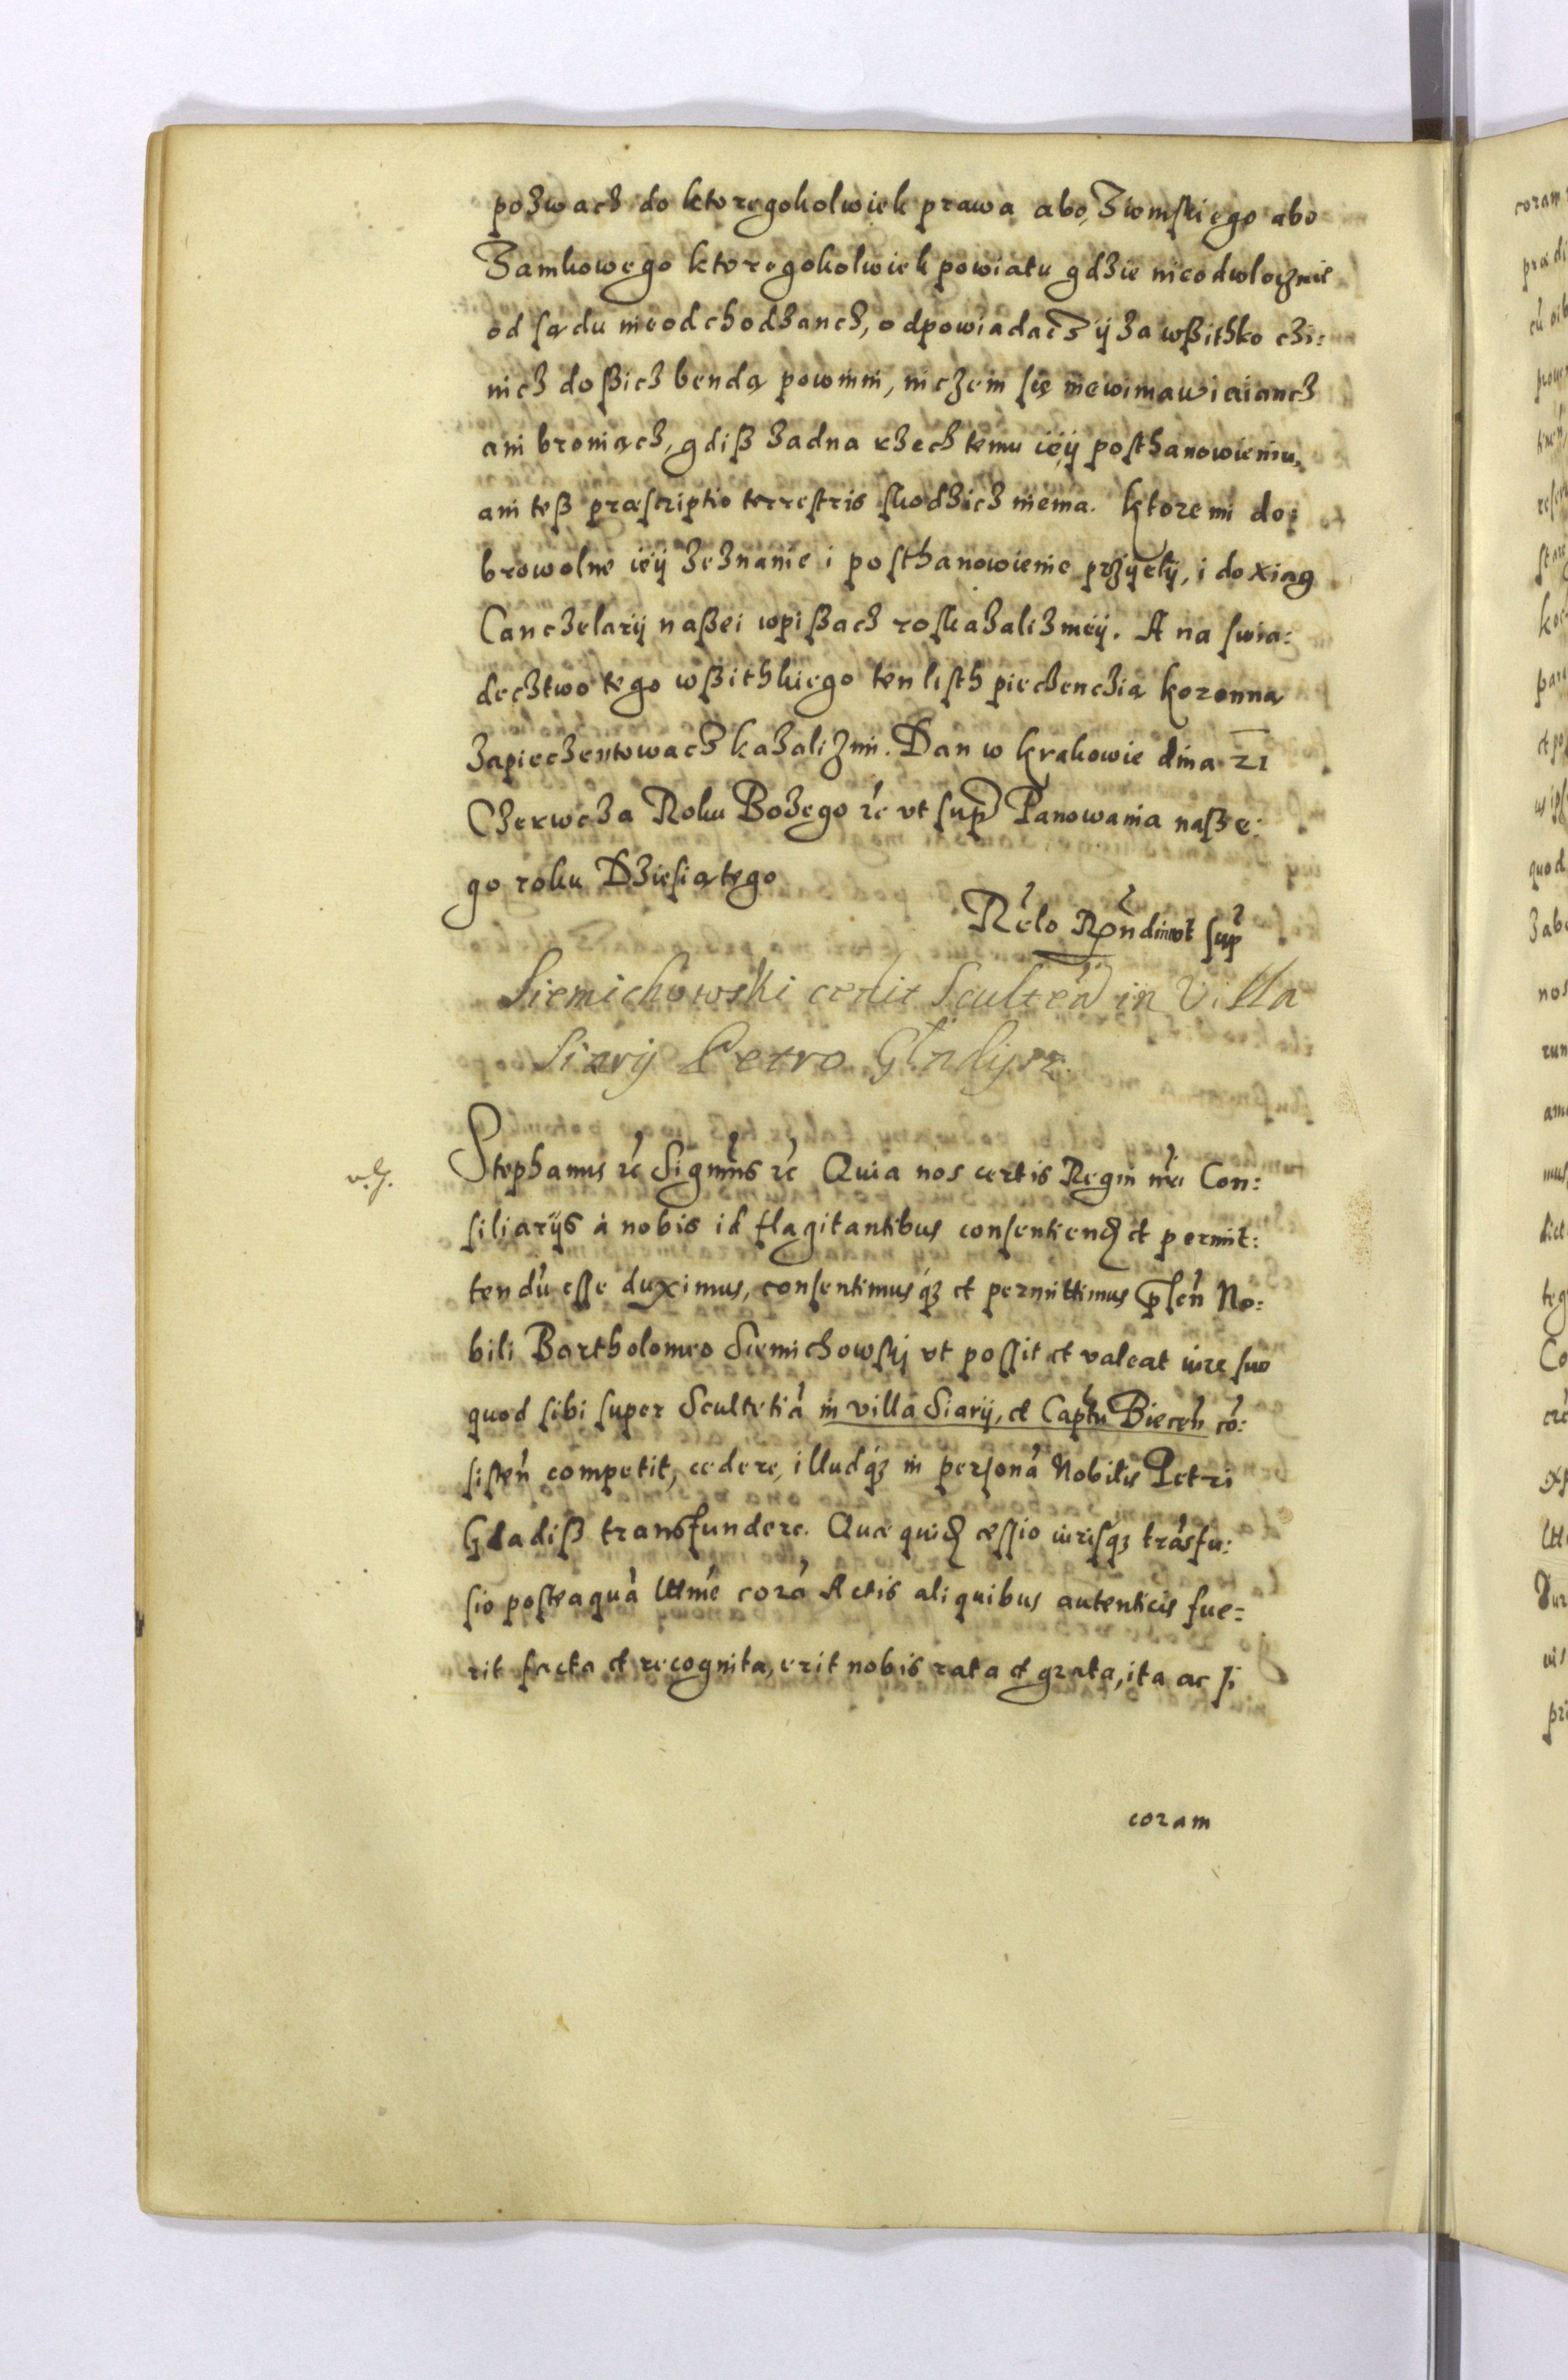 pozwacz do ktoregokolwiek prawa abo Ziemskiego abo
Zamkowego ktoregokolwiek powiatu gdzie nieodwlocznie
od sądu nieodchodzancz, odpowiadacz ÿ za wßithko czi:
nicz doßicz bendą powinni, niczem się niewimawiaiancz
ani broniącz, gdiß zadna rzecz temu ieÿ posthanowieniu,
ani teß præscriptio terrestris skodzicz niema. Ktore mi do:
browolne ieÿ zeznanie i posthanowienie przÿęlÿ, i do xiąg
Canczelarÿ naßei wpißacz roskazalizmÿ. A na swia:
decztwo tego wßithkiego ten listh pieczenczią koronną
zapieczentowacz kazalizmi. Dan w Krakowie dnia 21
Czerwcza Roku Bozego ꝛc vt sup Panowania naße:
go roku Dziesiątego
Relo Rndi vt sup
Siemichowski cedit Scultea in Villa
Siary Petro Gladysz.
v. J.
Stephanus ꝛc Signmus ꝛc Quia nos certis Regni nri Con:
siliarÿs à nobis id flagitantibus consentiend et permit:
tendu esse duximus, consentimusq et permittimus psen No:
bili Bartholomeo Siemichowski vt possit et valeat iure suo
quod sibi super Scultetia in villa Siarÿ, et Captu Biecen co:
sisten competit, cedere, illudq in persona Nobilis Petri
Gladiß transfundere. Quæ quid cessio iurisq trasfu:
sio posteaqua lttme cora Actis aliquibus autenticis fue:
rit facta et recognita, erit nobis rata et grata, ita ac si
coram